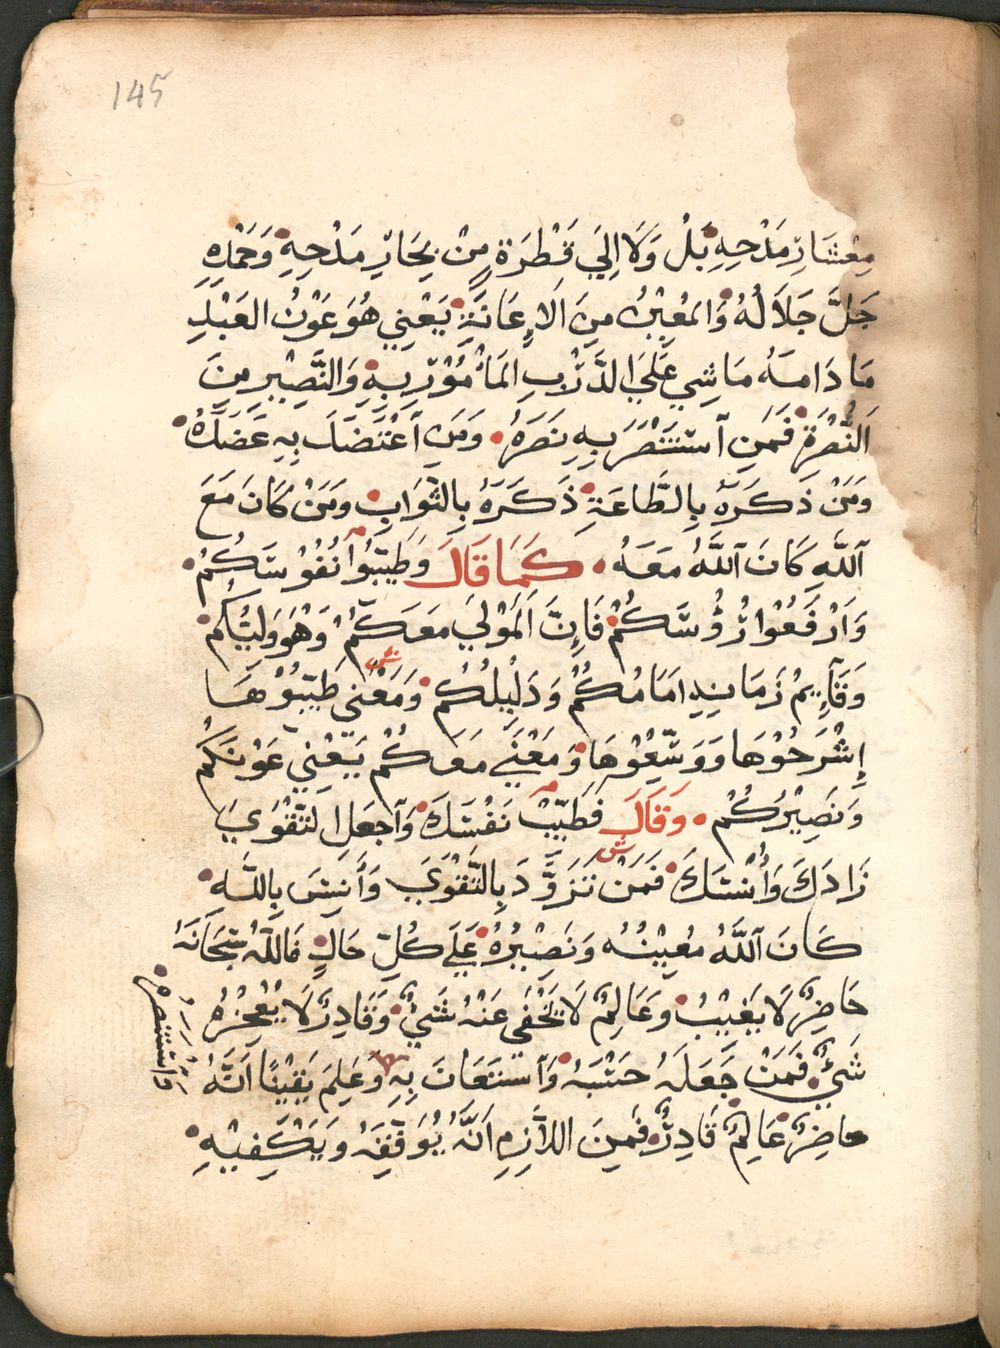 145
مِعْشَارِ مَدْحِهِ بَلْ وَلَا اِلَي قَطْرَةٍ مِنْ بِحَارِ مَدْحِهِ وَحَمْدِهِ
جَلَّ جَلَالُهُ وَالمُعِيْنُ مِنَ الاِعَانَةِ يَعْنِي هُوَ عَوْنُ العَبْدِ
مَا دَامَهُ مَاشِي عَلَي الدَّرْبِ المَأْمُوْرِ بِهِ وَالنَّصِيْرِ مِنَ
النُّصْرَةِ فَمَنِ آسْتَنْصَرَ بِهِ نَصَرَهُ وَمَنِ آعْتَضَدَ بِهِ عَضَدَهُ
وَمَنْ ذَكَرَهُ بِالطَّاعَةِ ذَكَرَهُ بِالثَّوَابِ وَمَنْ كَانَ مَعَ
آللَّهِ كَانَ آللَّهُ مَعَهُ كَمَا قَالَ وَطَيِّبُوا نُفُوْسَكُمْ
وَآرْفَعُوْا رُؤُسَكُمْ فَإِنَّ المَوْلَي مَعَكُمْ وَهُوَ وَلِيُّكُمْ
وَقَآئِمُ زَمَانِهِ اِمَامُكُمْ وَدَلِيْلُكُمْ وَمَعْنِي طَيِّبُوْهَا
إِشْرَحُوْهَا وَوَسِّعُوْهَا وَمَعْنَي مَعَكُمْ يَعْنِي عَوْنَكُمْ
وَنَصِيْرُكُمْ وَقَالَ فَطَيِّبْ نَفْسَكَ وَآجْعَلِ التَّقْوَيَ
زَادَكَ وَأُنْسَكَ فَمَنْ تَزَوَّدَ بِالتَّقْوَي وَأَنِسَ بِاللَّهِ
كَانَ آللَّهُ مُعِيْنُهُ وَنَصِيْرُهُ عَلَي كُلِّ حَالٍ فَاللَّهُ سُبْحَانَهُ
حَاضِرٌ لَا يَغِيْبُ وَعَالِمٌ لَا يَخْفَي عَنْهُ شَيْءٌ وَقَادِرٌ لَا يُعْجِزُهُ
شَيْءٌ فَمَنْ جَعَلَهُ حَسْبَهُ وَآسْتَعَانَ بِهِ وَعَلِمَ يَقِيْنًا اَنَّهُ
حَاضِرٌ عَالِمٌ قَادِرٌ فَمِنَ اللَّازِمِ اَنَّهُ يُوَفِّقَهُ وَيَكْفِيْهِ
وَآسْتَنْصَرَهُ